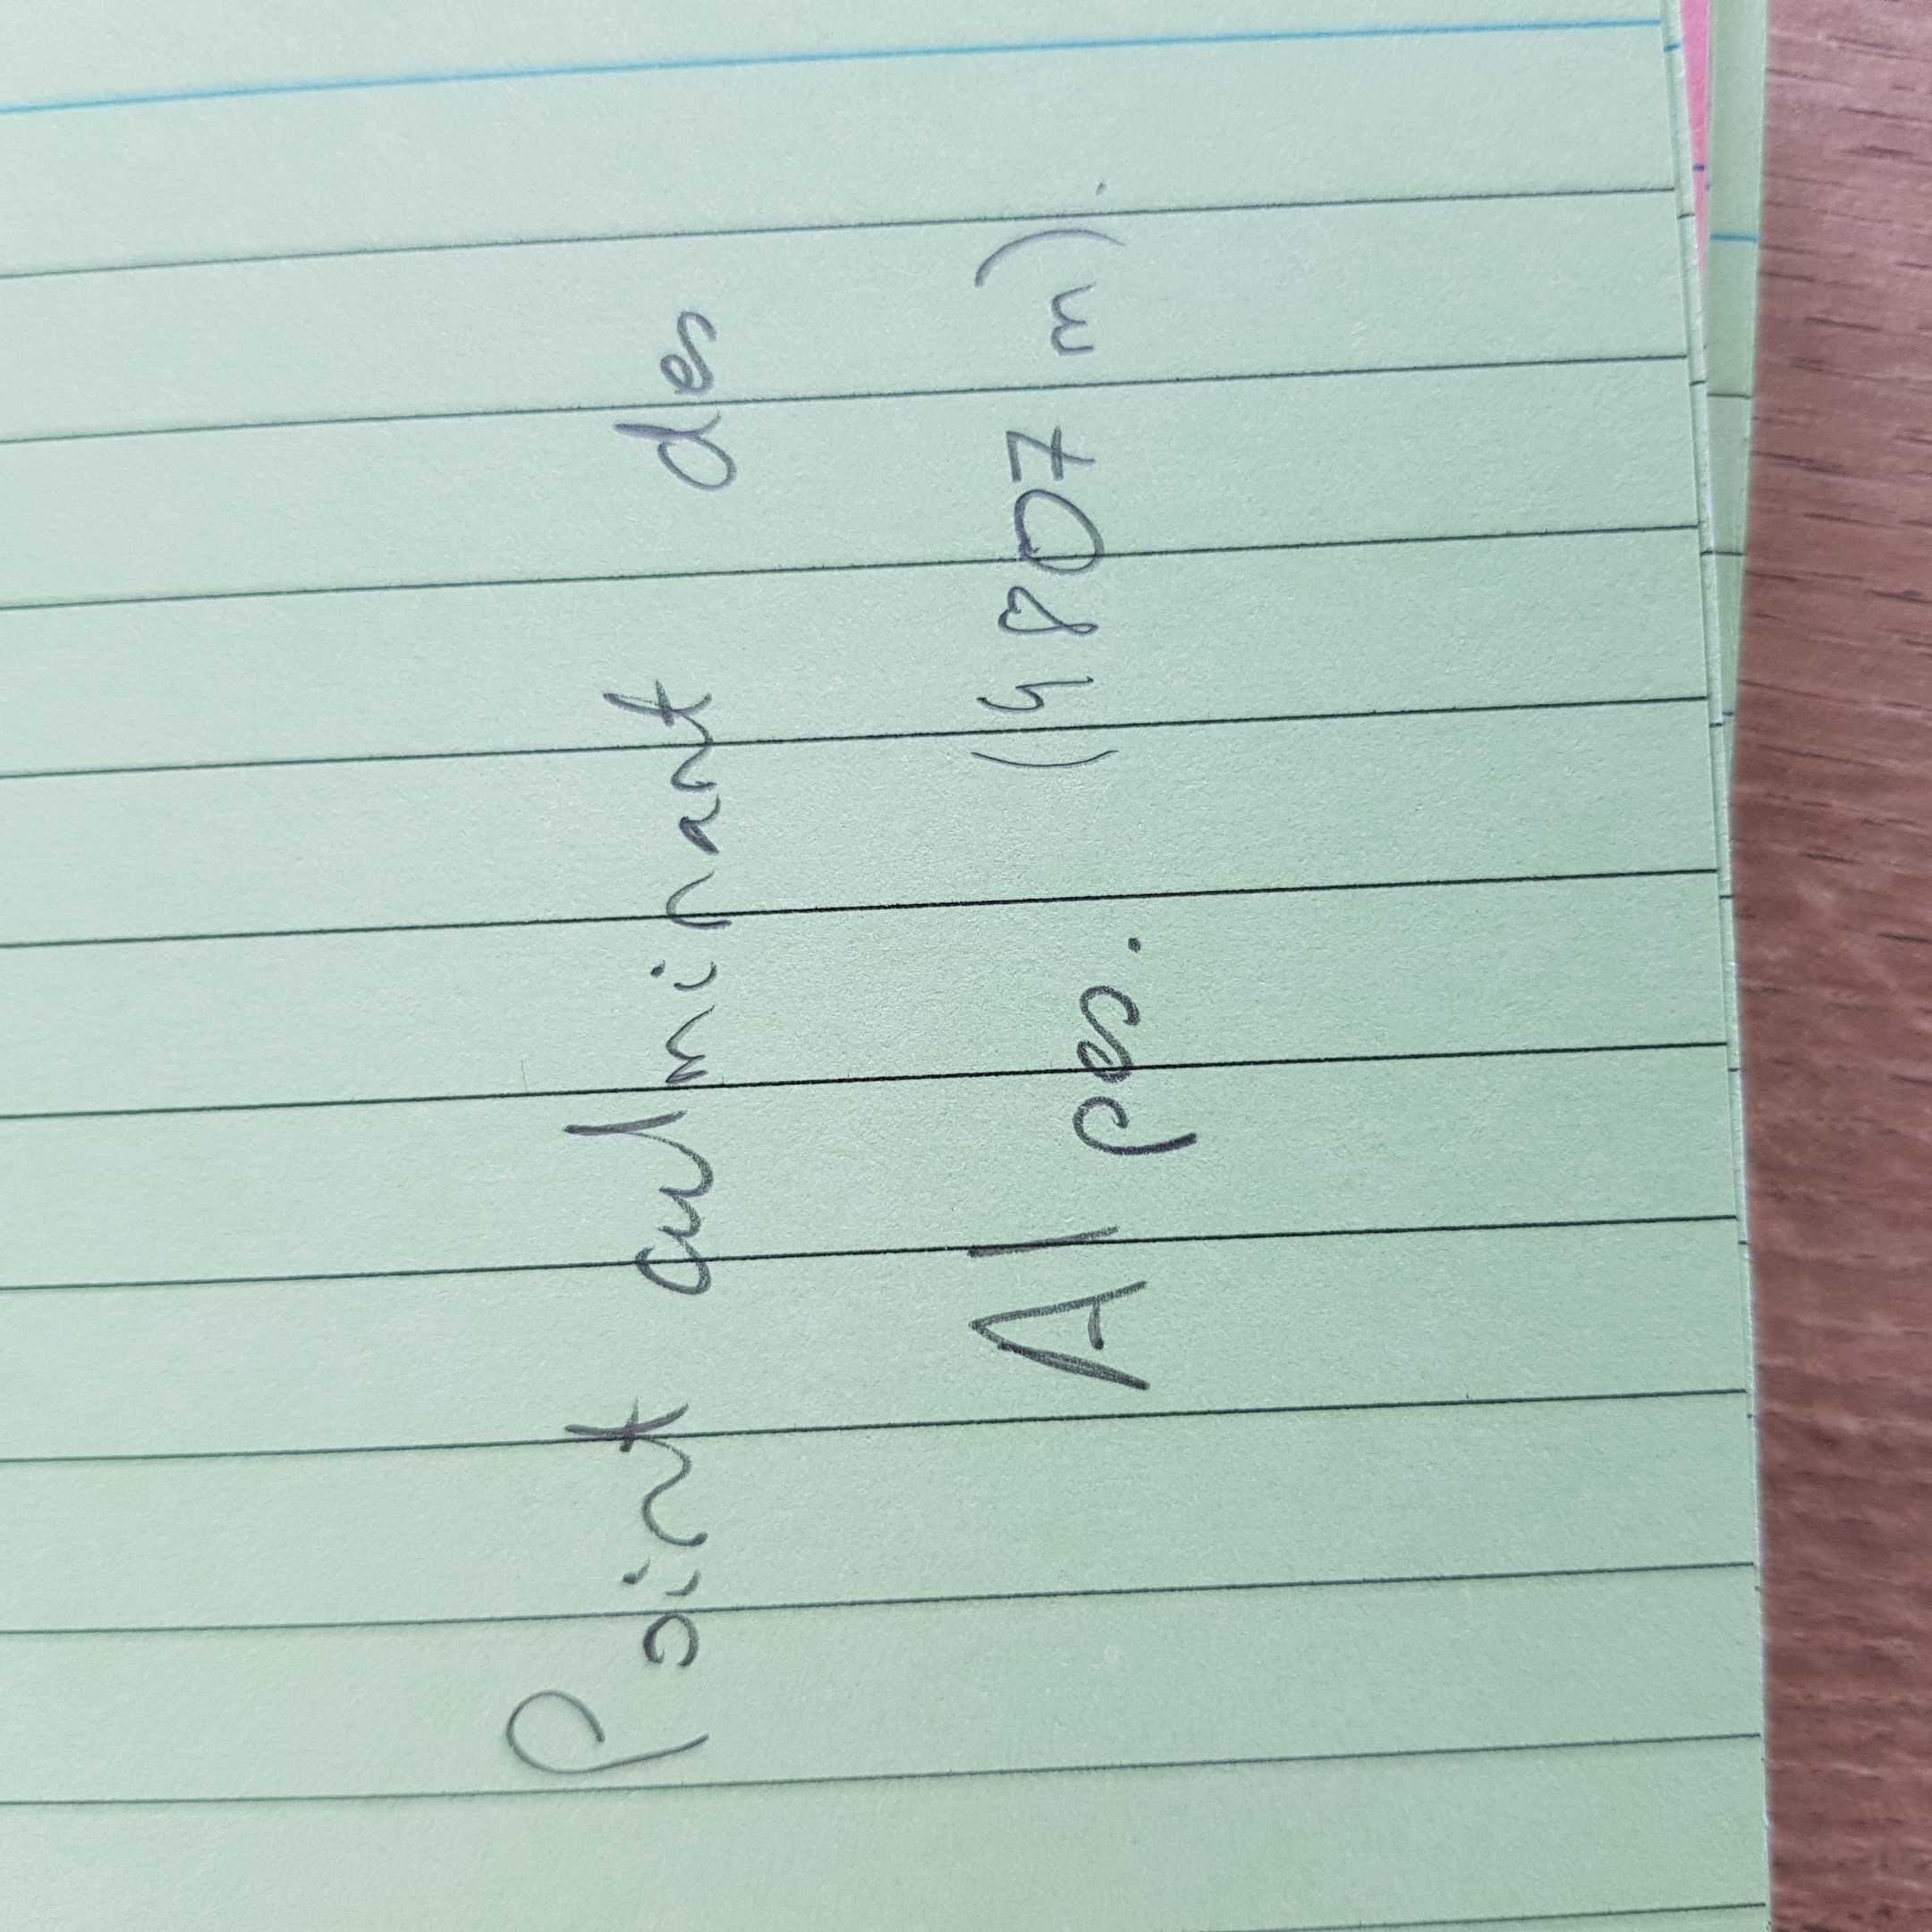 Point culminant des
Alpes. (4807 m).